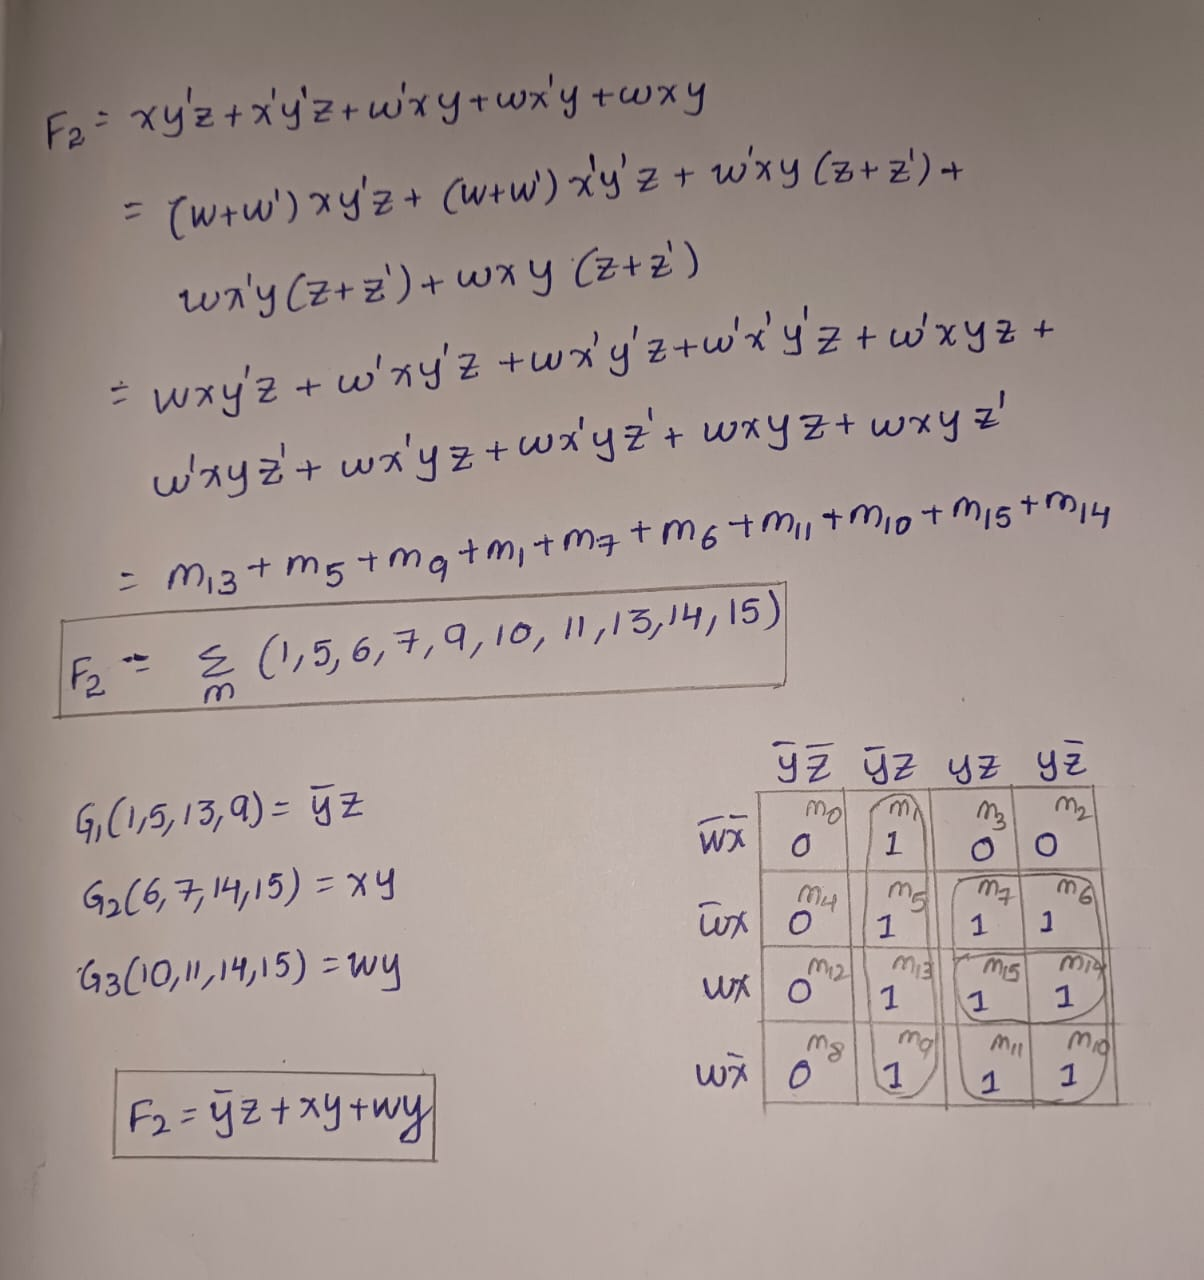 F₂ = xy'z + x'y'z + w'xy + wx'y + wxy
= (w+w')xy'z + (w+w')x'y'z + w'xy(z+z') +
wx'y(z+z') + wxy(z+z')
= wxy'z + w'xy'z + wx'y'z + w'x'y'z + w'xyz +
w'xyz' + wx'yz + wx'yz' + wxyz + wxyz'
= m₁₃ + m₅ + m₉ + m₁ + m₇ + m₆ + m₁₁ + m₁₀ + m₁₅ + m₁₄
F₂ = Σm (1,5,6,7,9,10,11,13,14,15)
G₁(1,5,13,9) = ȳz
G₂(6,7,14,15) = xy
G₃(10,11,14,15) = wy
F₂ = ȳz + xy + wy
ȳz̄ ȳz yz yz̄
m₀ m₁ m₃ m₂
w̄x̄ 0 1 0 0
m₄ m₅ m₇ m₆
w̄x 0 1 1 1
m₁₂ m₁₃ m₁₅ m₁₄
wx 0 1 1 1
m₈ m₉ m₁₁ m₁₀
wx̄ 0 1 1 1